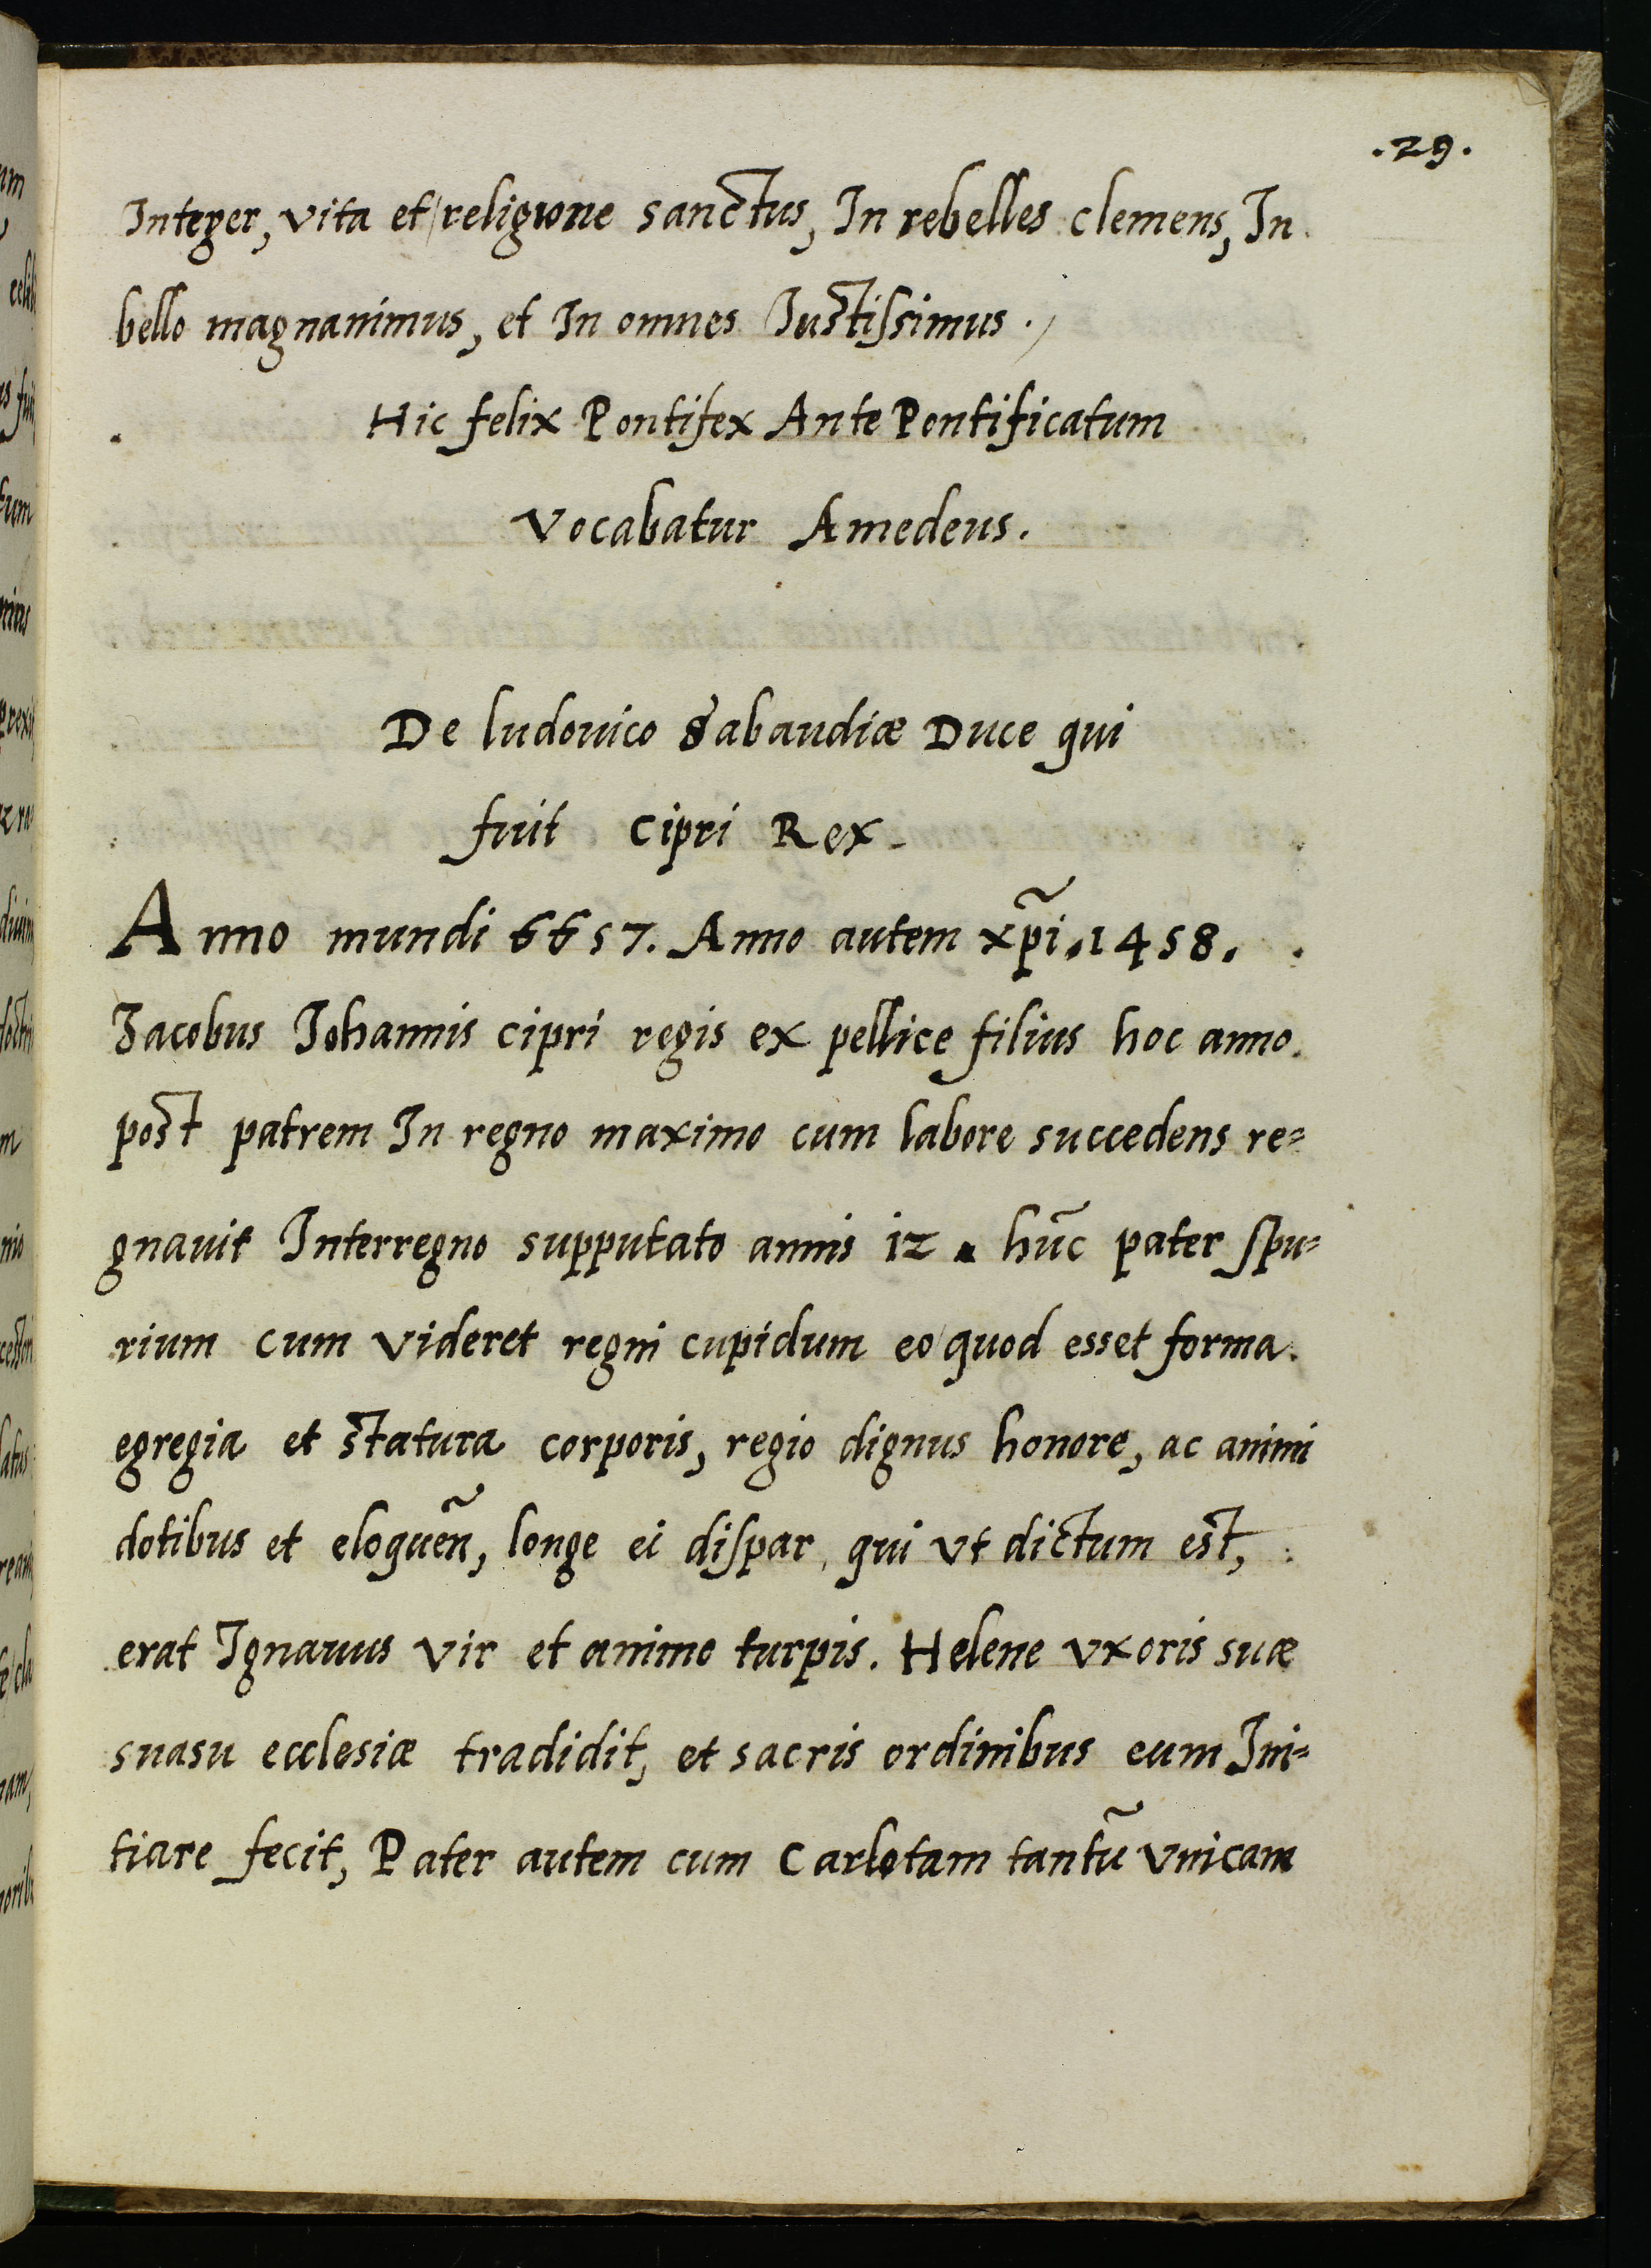 .29.
Integer, vita et religione sanctus, In rebelles clemens, In
bello magnanimus, et In omnes Iustissimus.
Hic felix Pontifex Ante Pontificatum
Vocabatur Amedeus.
De ludouico Sabaudiæ Duce qui
fuit Cipri Rex.
Anno mundi 6657. Anno autem xp̃i. 1458.
Iacobus Iohannis cipri regis ex pellice filius hoc anno
post patrem In regno maximo cum labore succedens re=
gnauit Interregno supputato annis 12. hũc pater spu=
rium cum videret regni cupidum eo quod esset forma
egregia et statura corporis, regio dignus honore, ac animi
dotibus et eloquẽn, longe ei dispar, qui vt dictum est,
erat Ignauus vir et animo turpis. Helene vxoris suæ
suasu ecclesiæ tradidit, et sacris ordinibus eum Ini=
tiare fecit, Pater autem cum Carlotam tantũ vnicam